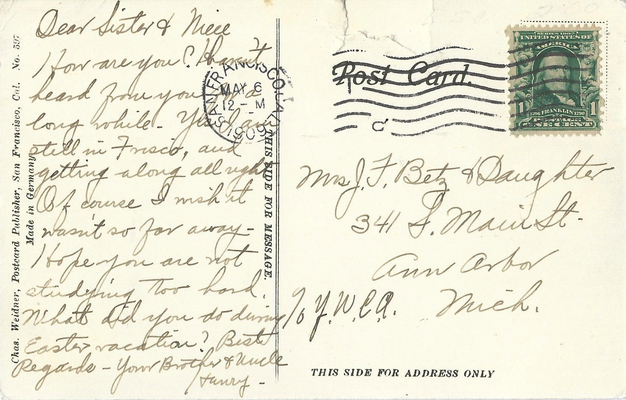 Dear Sister & Niece
How are you? Haven't
heard from you
long while - Yes I am
still in Frisco, and
getting along all right
Of course I wish it
wasn't so far away -
Hope you are not
studying too hard.
What did you do during
Easter vacation? Best
Regards - Your Brother & Uncle
Henry -
Chas. Weidner, Postcard Publisher, San Francisco, Cal. No. 597
Made in Germany
THIS SIDE FOR MESSAGE.
SAN FRANCISCO, CAL.
MAY 6
12 - M
1909
Post Card.
UNITED STATES OF AMERICA
1 FRANKLIN 1
ONE CENT
Mrs J. F. Betz & Daughter
341 S. Main St.
Ann Arbor
Mich.
c/o Y.W.C.A.
THIS SIDE FOR ADDRESS ONLY